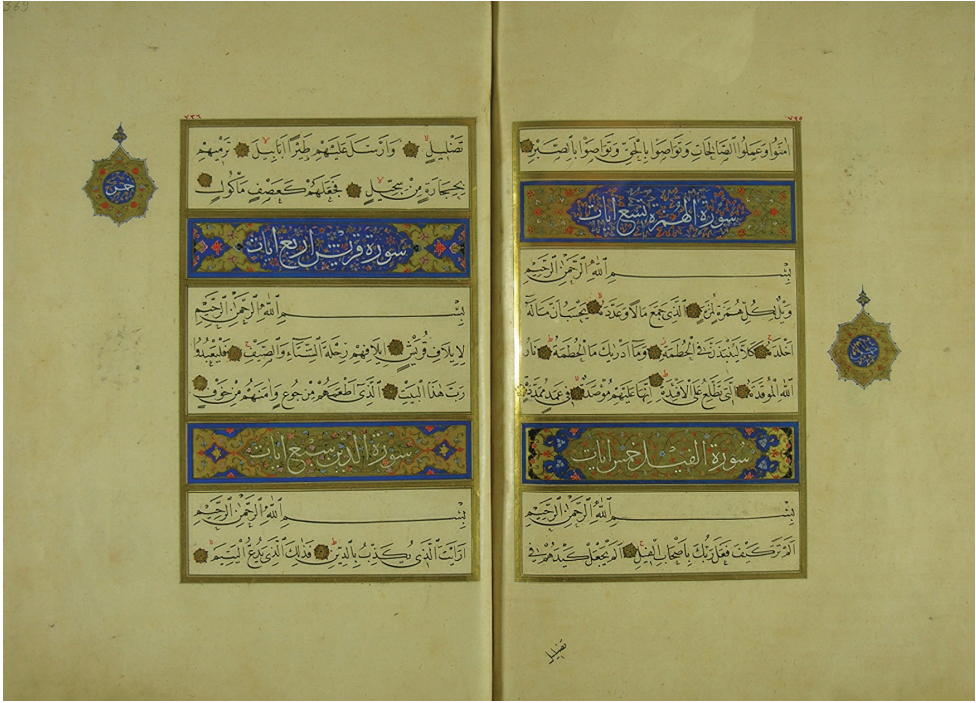 ٧٣٥
امنوا وعملوا الصالحات وتواصوا بالحق وتواصوا بالصبر
سورة الهمزة تسع ايات
بسم الله الرحمن الرحيم
ويل لكل همزة لمزة الذي جمع مالا وعدده يحسب ان ماله
اخلده كلا لينبذن في الحطمة وما ادريك ما الحطمة نار
الله الموقدة التي تطلع على الافئدة انها عليهم موصدة في عمد ممددة
سورة الفيل خمس ايات
بسم الله الرحمن الرحيم
الم تر كيف فعل ربك باصحاب الفيل الم يجعل كيدهم في
تضليل
369
٧٣٦
تضليل وارسل عليهم طيرا ابابيل ترميهم
بحجارة من سجيل فجعلهم كعصف ماكول
خمس
سورة قريش اربع ايات
بسم الله الرحمن الرحيم
لايلاف قريش ايلافهم رحلة الشتاء والصيف فليعبدوا
رب هذا البيت الذي اطعمهم من جوع وامنهم من خوف
سورة الدين سبع ايات
بسم الله الرحمن الرحيم
ارايت الذي يكذب بالدين فذلك الذي يدع اليتيم